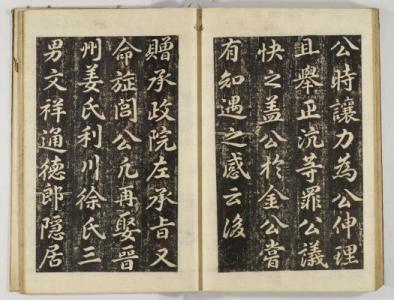 公時讓力為公伸理
且舉正沆等罪公議
快之盖公於金公嘗
有知遇之感云後
贈承政院左承旨又
命旌閭公凢再娶晉
州姜氏利川徐氏三
男文祥通德郎隱居